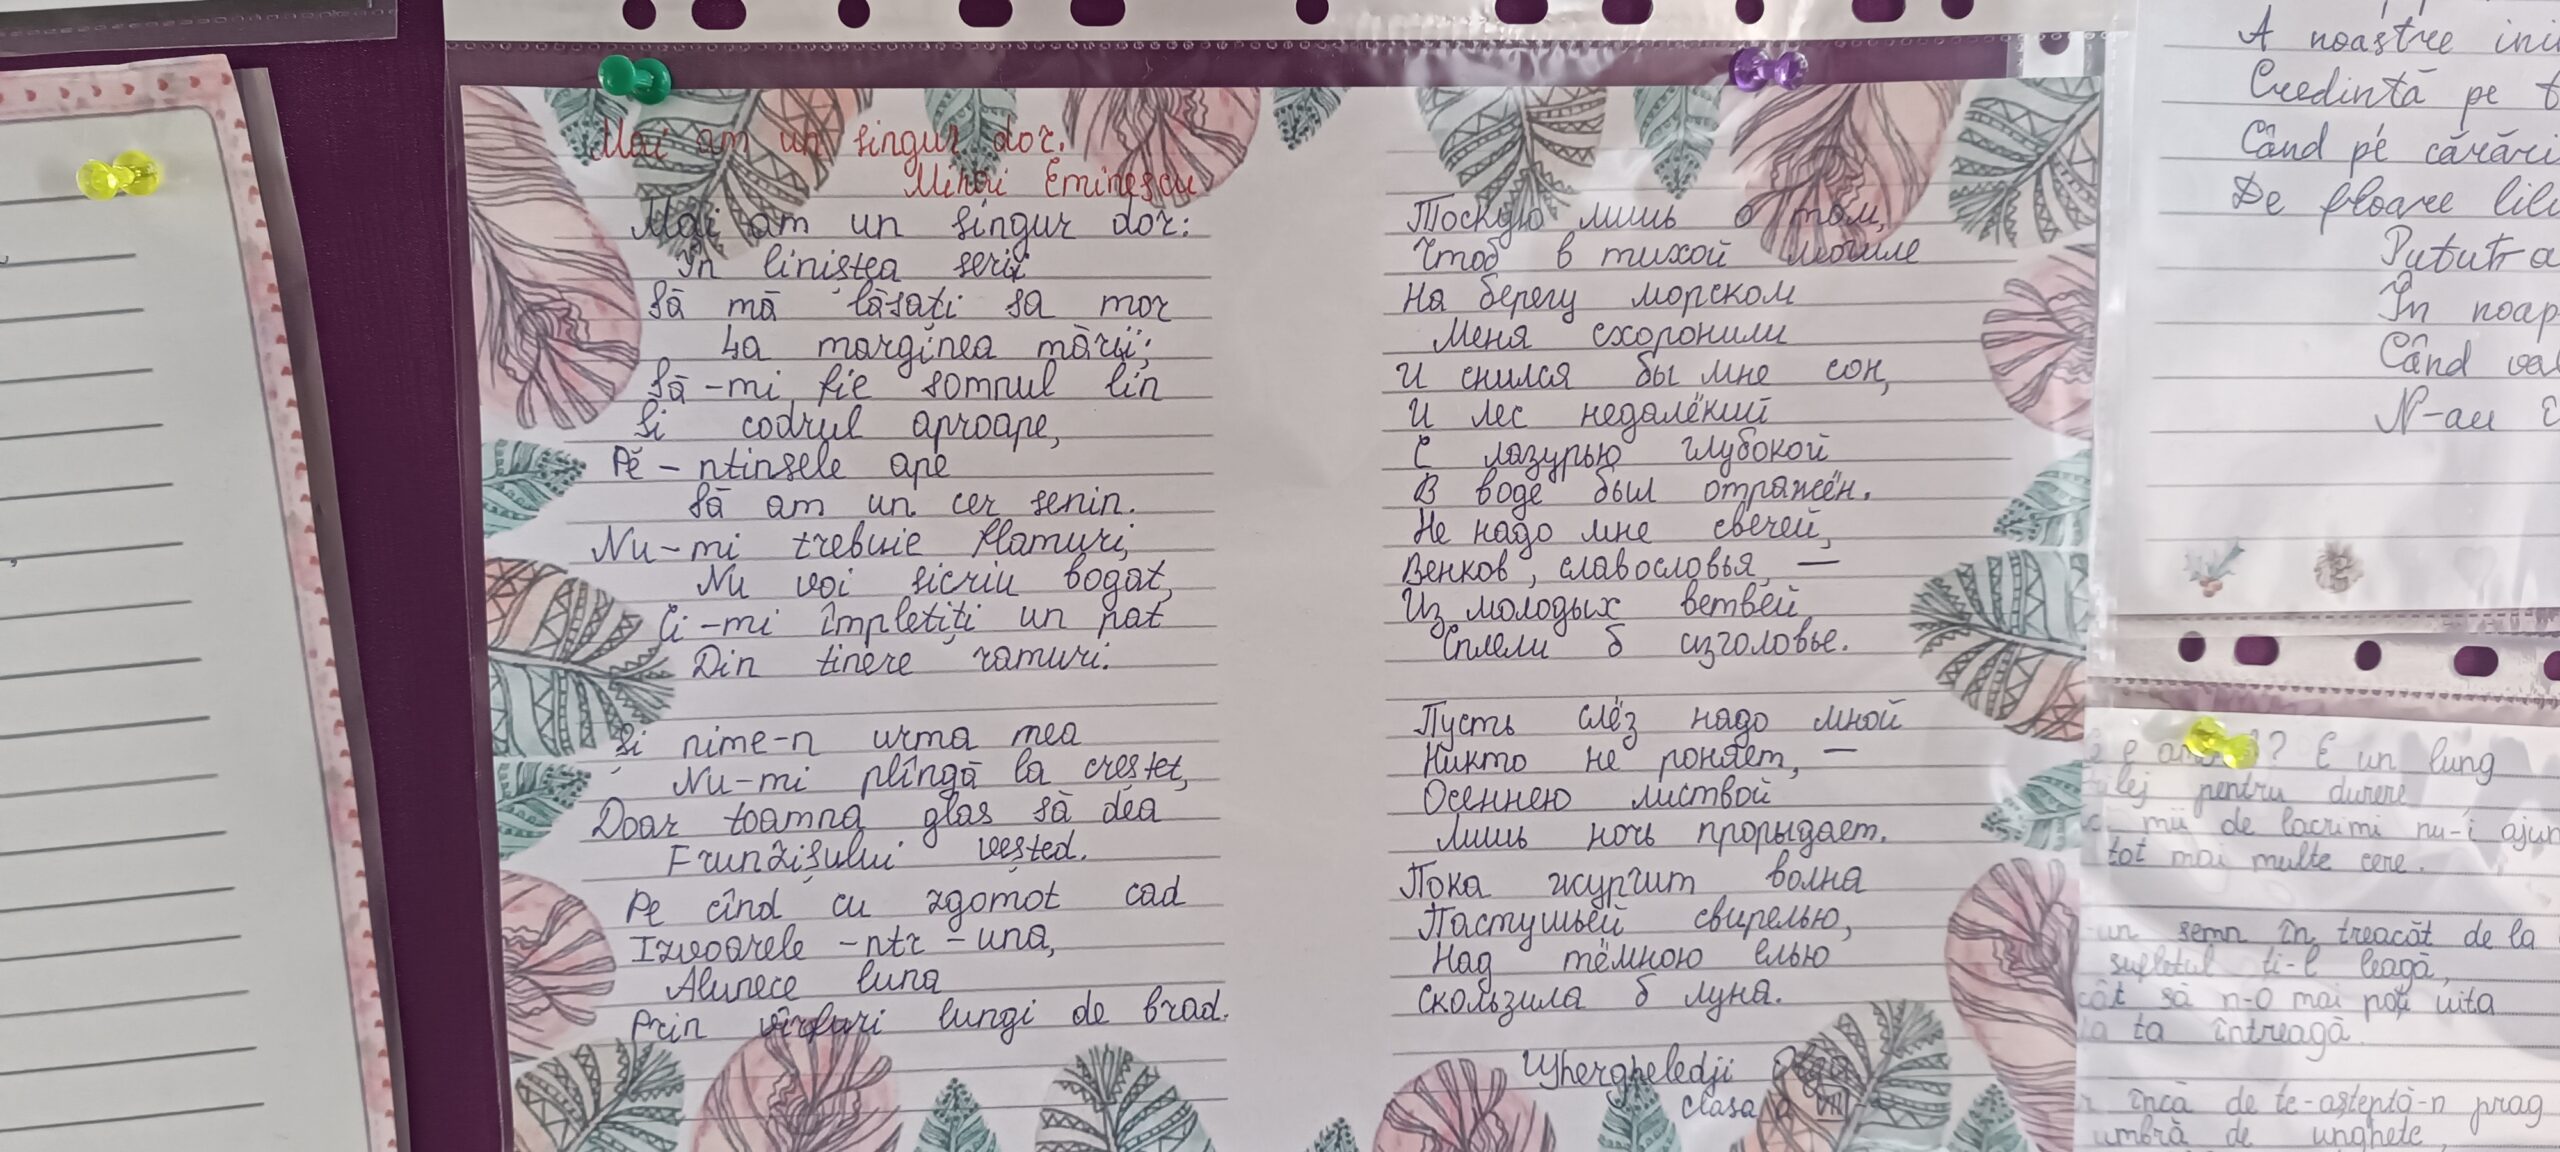 Mai am un singur dor.
Mihai Eminescu
Mai am un singur dor:
În liniștea serii
Să mă lăsați sa mor
La marginea mării;
Să-mi fie somnul lin
Și codrul aproape,
Pe-ntinsele ape
Să am un cer senin.
Nu-mi trebuie flamuri,
Nu voi sicriu bogat,
Ci-mi împletiți un pat
Din tinere ramuri.
Și nime-n urma mea
Nu-mi plîngă la creștet,
Doar toamna glas să dea
Frunzișului veșted.
Pe cînd cu zgomot cad
Izvoarele -ntr-una,
Alunece luna
Prin vîrfuri lungi de brad.
Тоскую лишь о том,
Чтоб в тихой могиле
На берегу морском
Меня схоронили
И снился бы мне сон,
И лес недалёкий
С лазурью глубокой
В воде был отражён.
Не надо мне свечей,
Венков, славословья, —
Из молодых ветвей
Сплели б изголовье.
Пусть слёз надо мной
Никто не роняет, —
Осеннею листвой
Лишь ночь прорыдает.
Пока журчит волна
Пастушьей свирелью,
Над тёмною елью
Скользила б луна.
Olga
clasa a VII-a
A noastre
Credintă pe
Când pe cărări
De floare
În
Când
N-au
E un lung
pentru durere
mii de lacrimi nu-i
tot mai multe cere.
-un semn în treacăt de la
sufletul ți-l leagă,
să n-o mai poți uita
ta întreagă.
încă de te-așteptă-n prag
umbră de unghete,